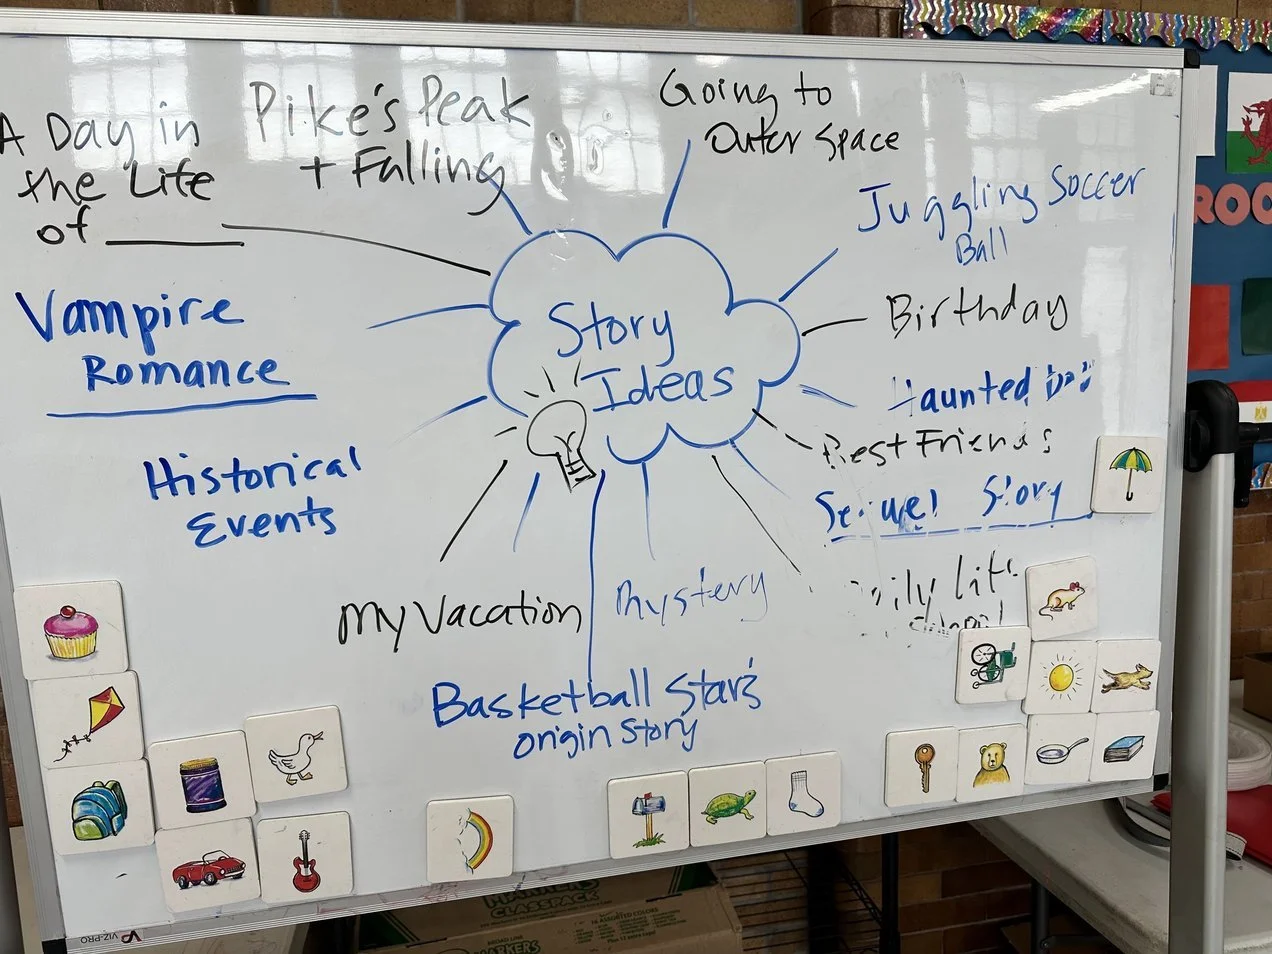 A Day in
the Life
of
Pike's Peak
+ Falling
Going to
Outer Space
Juggling Soccer
Ball
Birthday
Haunted
Best Friends
Sequel Story
Story
Ideas
Vampire
Romance
Historical
Events
My Vacation
Mystery
Basketball Star's
origin story
ROO
VIZ-PRO
MARKERS
CLASSPACK
MARKERS